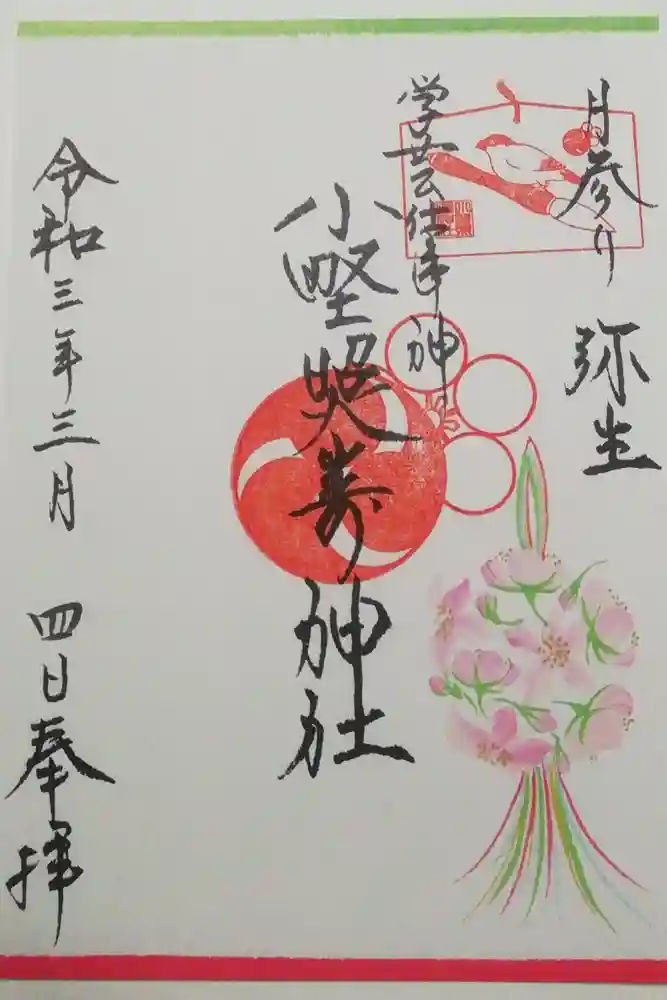 月参り 弥生
学芸仕事神
小野照嵜神社
令和三年三月 四日奉拝